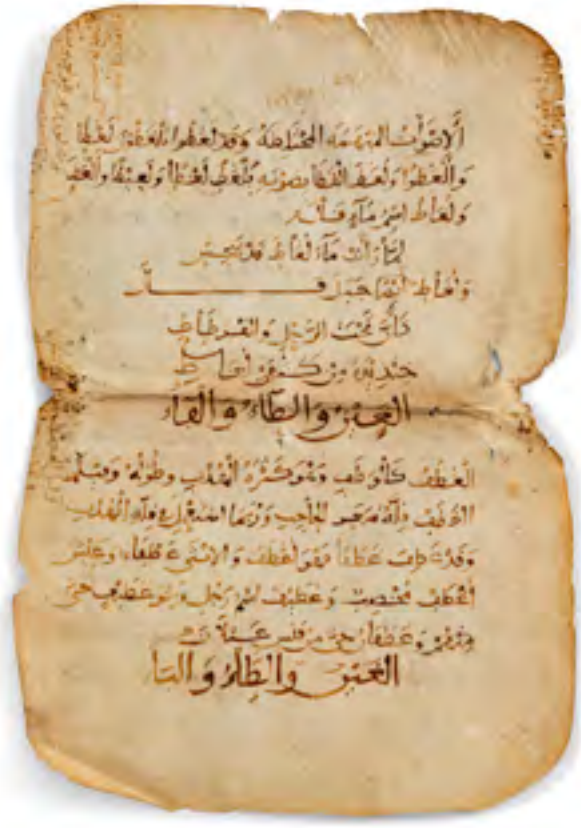 الاصوات المبهمه المختلطة وقد لغطوا يلغطون لغطا
والغطوا ولغط القطا بصوته يلغط لغطا ولغيطا والغط
ولغاط اسم ماء قال
لما رأت ماء لغاط قد سجس
ولغاط ايضا جبل قال
كأن تحت الرحل والقرطاط
خنذيذة من كنفي لغاط
الغين والطاء والفاء
الغطف كالوطف وهو كثرة الهدب وطوله وقيل
الغطف قلة شعر الحاجب وربما استعمل في قلة الهدب
وقد غطف غطفا فهو اغطف والانثى غطفاء وعيش
اغطف مخصب وغطيف اسم رجل وبنو غطيف حي
وغطفان حي من قيس عيلان
الغين والطاء والبا